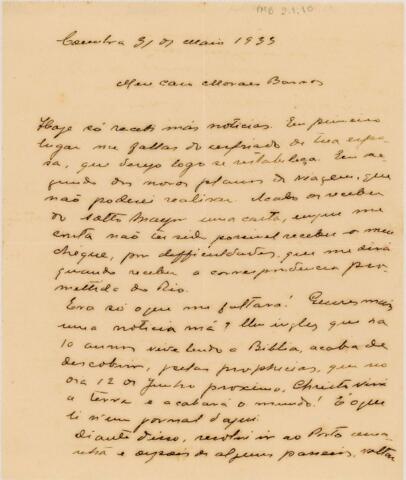 PMB 2.1.10
Coimbra 31 de Maio 1933
Meu caro Moraes Barros
Hoje só recebi más noticias. Em primeiro
lugar me fallas do resfriado de tua espo-
sa, que desejo logo se restabeleça. Em se-
gundo dos novos planos de viagem, que
não poderei realizar. Acabo de receber
do Mattos uma carta, em que me
conta não ter sido possivel receber o meu
cheque, por difficuldades, que me dirá
quando receber a correspondencia pro-
mettida do Rio.
Era só o que me faltava! Queres mais
uma noticia má? Um inglez que ha
10 annos vive lendo a Biblia, acaba de
descobrir, pelas prophecias, que no
dia 12 de Junho proximo, Christo virá
a terra e acabará o mundo! É o que
li n'um jornal d'aqui.
Diante disso, resolvi ir ao Porto ama-
nhã e depois de alguns passeios, voltar